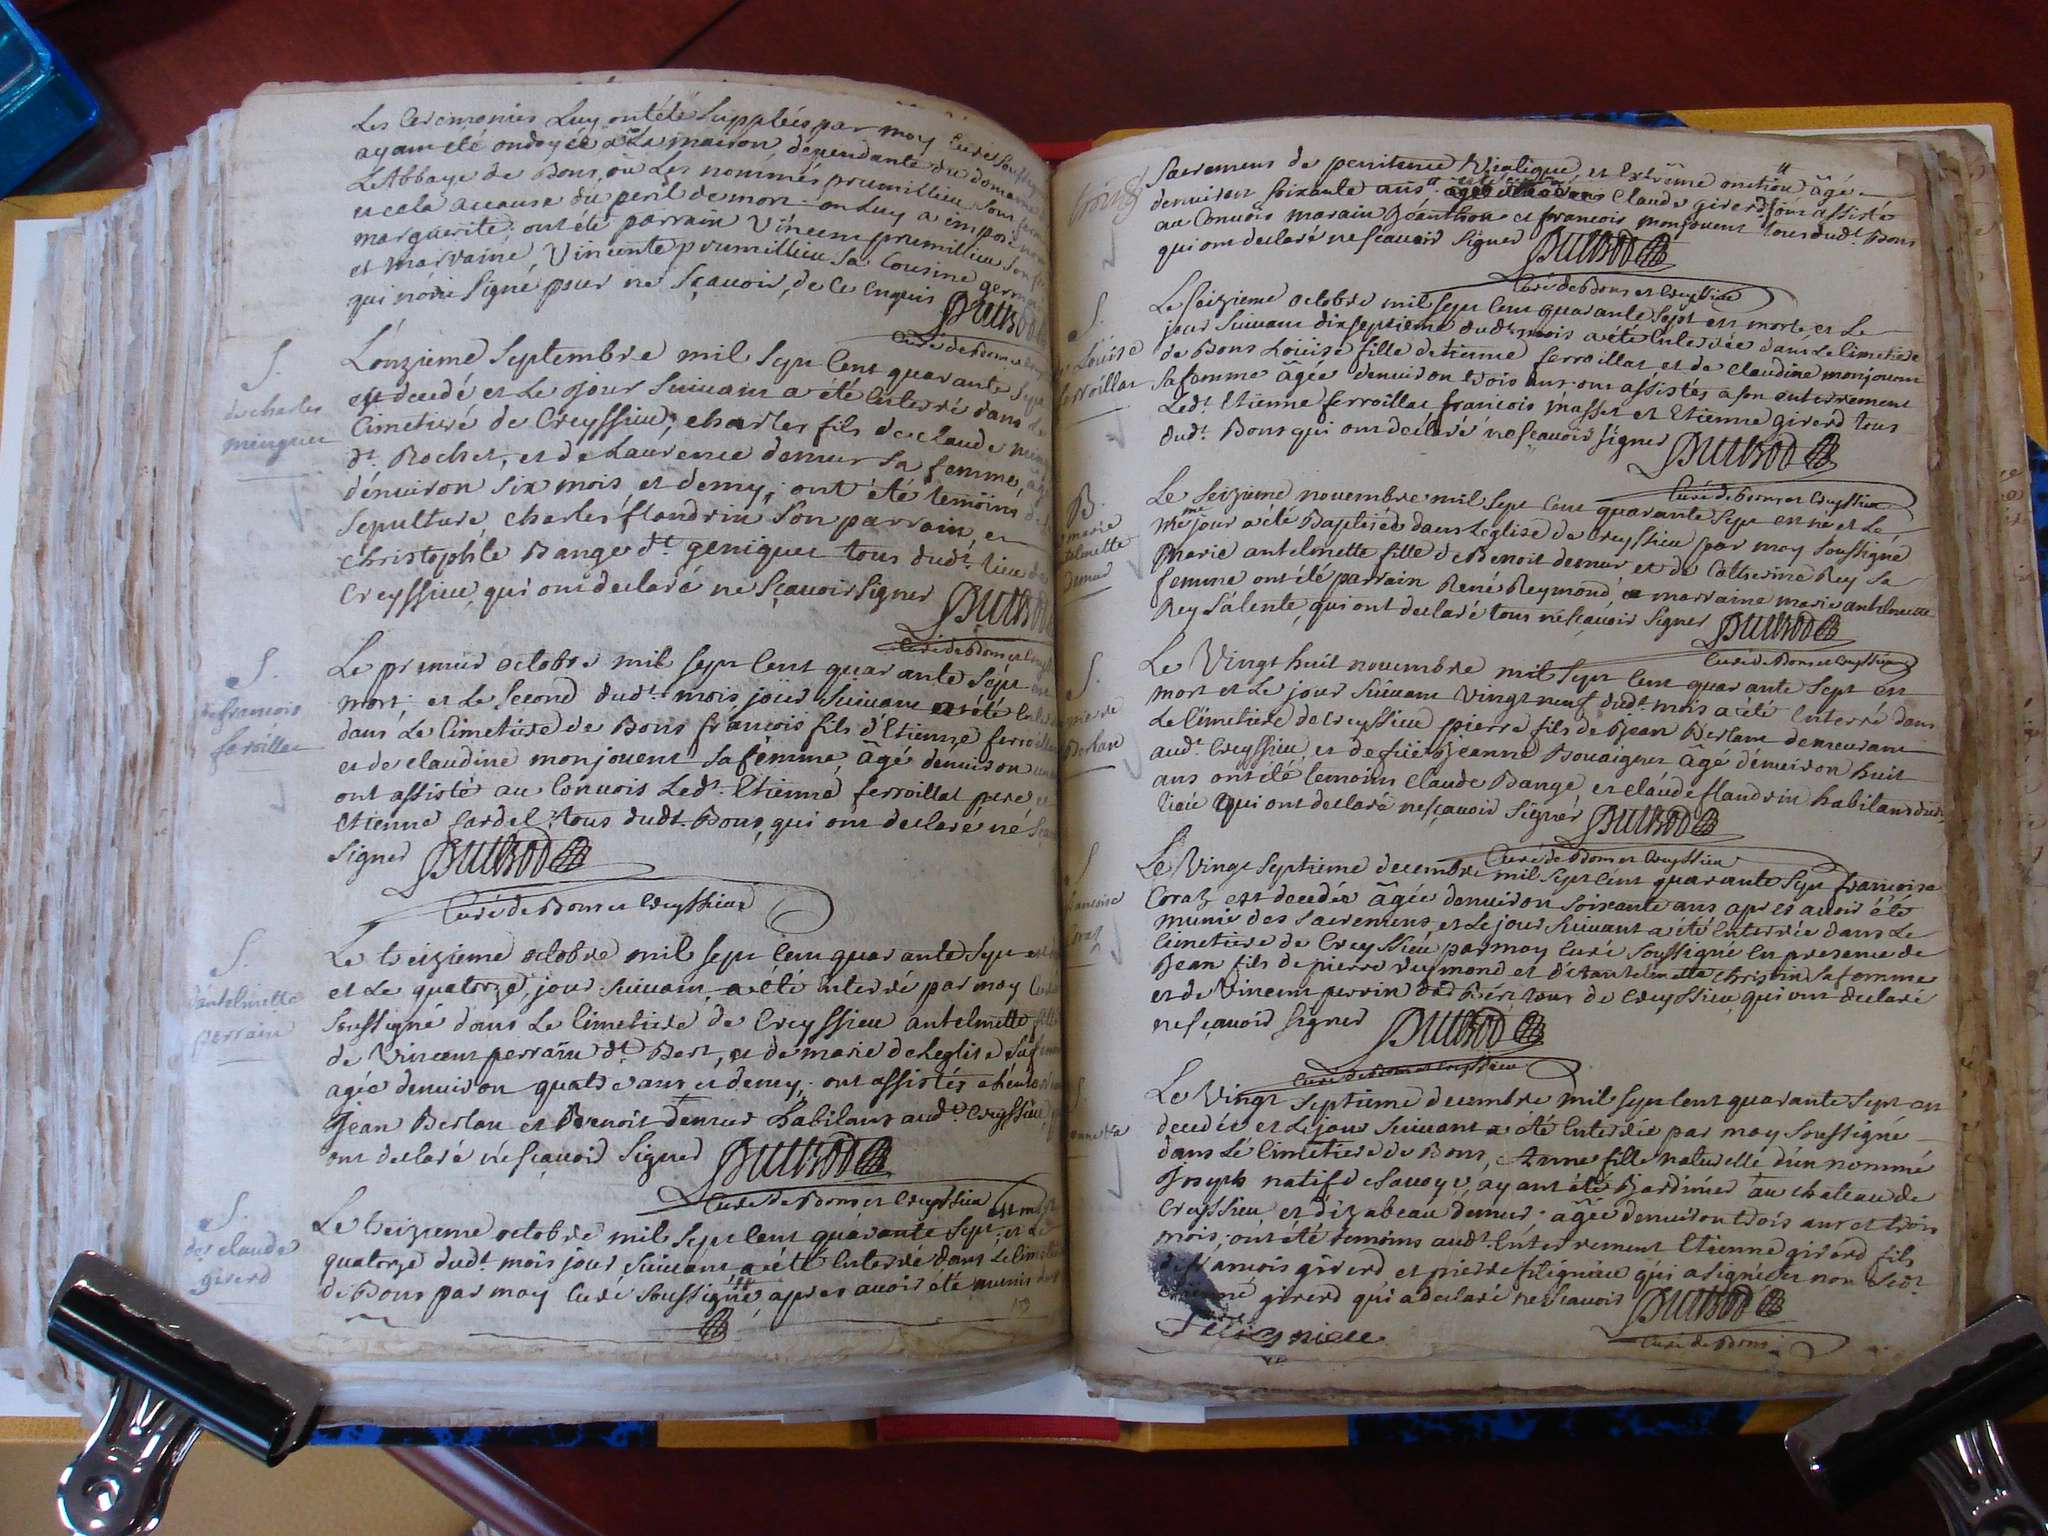 Les Ceremonies Luy ont été Suppléés par moy Curé Soussig
ayant été ondoyée a La maison dependante du domaine
L'Abbaye de Bons, où Les nommés prumillieu sont ferm
et cela acause du peril de mort. on Luy a imposé nom
marguerite. ont été parrain Vincent prumillieu son fre
et marraine, Vincente prumillieu sa Cousine germai
qui n'ont Signé pour ne Sçavoir, de Ce Enquis Dutrod
Curé de Bons et Creyss
S.
de charles
minguet
L'onzieme Septembre mil Sept Cent quarante Sept
est decedé et Le Jour Suivant a été Enterré dans Le
Cimetiere de Creyssieu, charles fils de claude min
dt. Rochet, et de Laurence demur Sa femme, agé
d'environ six mois et demy; ont été temoins de la
Sepulture, charles flandrin son parrain, et
christophle Bange dt. geniquet tous dudt. lieu de
Creyssieu, qui ont declaré ne Sçavoir Signer Dutrod
Curé de Bons et Creyss
S.
de francois
feroillat
Le premier octobre mil Sept Cent quarante Sept est
mort, et Le Second dudt. mois jour Suivant a été Enterré
dans Le Cimetiere de Bons francois fils d'Etienne ferroillat
et de claudine monjouent sa femme, âgé denviron un an
ont assisté au Convois Ledt. Etienne ferroillat pere et
Etienne fardel, tous dudt. Bons, qui ont declaré né Sçavoir
Signer Dutrod
Curé de Bons et Creyssieu
S.
d'antelmette
perrain
Le treizieme octobre mil Sept Cent quarante Sept est
et Le quatorze, jour Suivant, a été Enterré par moy Curé
Soussigné dans Le Cimetiere de Creyssieu antelmette fille
de Vincent perrain dt. Bert, et de marie deleglise Sa femme
agée denviron quatre ans et demy; ont assistés a l'enterrem
Jean Berlan et Benoit demur habilans audt. Creyssieu, qui
ont declaré né Sçavoir Signer Dutrod
Curé de Bons et Creyssieu
S.
de claude
girerd
Le treizieme octobre mil Sept Cent quarante Sept, est mort et Le
quatorze dudt. mois jour Suivant a été Enterré dans Le Cimetiere
de Bons par moy Curé Soussigné, apres avoir été munis des
Sacremens de penitence Viatique, et Extrême onction âgé
denviron soixante ans Claude girerd, sont assisté
au Convois marain Jéanthon et francois monjouent tous dudt. Bons
qui ont declaré ne Sçavoir Signer Dutrod
Curé de Bons et Creyssieu
S.
Loüise
ferroillat
Le Seizieme octobre mil Sept Cent quarante Sept est morte et Le
jour Suivant dixseptieme dudt. mois a été Enterrée dans Le Cimetiere
de Bons Loüise fille detienne ferroillat et de claudine monjouent
Sa femme âgée denviron trois ans ont assistés a son enterrement
Ledt. Etienne ferroillat francois masset et Etienne girerd tous
dudt. Bons qui ont declaré ne Sçavoir signer Dutrod
Curé de Bons et Creyssieu
B.
marie
antelmette
Demur
Le Seizieme novembre mil Sept Cent quarante Sept est né et Le
mesme jour a été Baptisée dans L'eglise de Creyssieu par moy Soussigné
Marie antelmette fille de Benoit demur et de Catherine Rey Sa
femme ont été parrain René Reymond, et marraine marie antelmette
Rey Sa tente, qui ont declaré tous né Sçavoir Signer Dutrod
Curé de Bons et Creyssieu
S.
pierre
Berlan
Le Vingt huit novembre mil Sept Cent quarante Sept est
mort et Le jour Suivant Vingt neuf dudt. mois a été Enterré dans
Le Cimetiere de Creyssieu pierre fils de Jean Berlan demeurant
audt. Creyssieu, et de Jeanne Bouaignet âgé denviron huit
ans ont été temoins Claude Bange, et claude flandrin habilans dudt.
lieu qui ont declaré ne Sçavoir Signer Dutrod
Curé de Bons et Creyssieu
S.
francoise
Coraz
Le Vingt Septieme decembre mil Sept Cent quarante Sept francoise
Coraz est decedée âgée denviron soixante ans apres avoir été
munie des Sacremens, et Le jour Suivant a été Enterrée dans Le
Cimetiere de Creyssieu par moy Curé Soussigné En presence de
Jean fils de pierre reymond et d'antelmette christin Sa femme
et de Vincent perrin dt. Bert tous de Creyssieu, qui ont declaré
ne Sçavoir Signer Dutrod
Curé de Bons et Creyssieu
S.
Le Vingt Septieme decembre mil Sept Cent quarante Sept est
decedée et Le jour Suivant a été Enterrée par moy Soussigné
dans Le Cimetiere de Bons, Anne fille naturelle d'un nommé
Joseph natif de Savoye, ayant été Jardinier au chateau de
Creyssieu et d'izabeau demur. agée denviron trois ans et trois
mois; ont été temoins audt. Enterrement Etienne girerd fils
de francois girerd et pierre filignieu qui a signé et non Ledt.
Etienne girerd qui a declaré ne Scavoir Dutrod
Curé de Bons